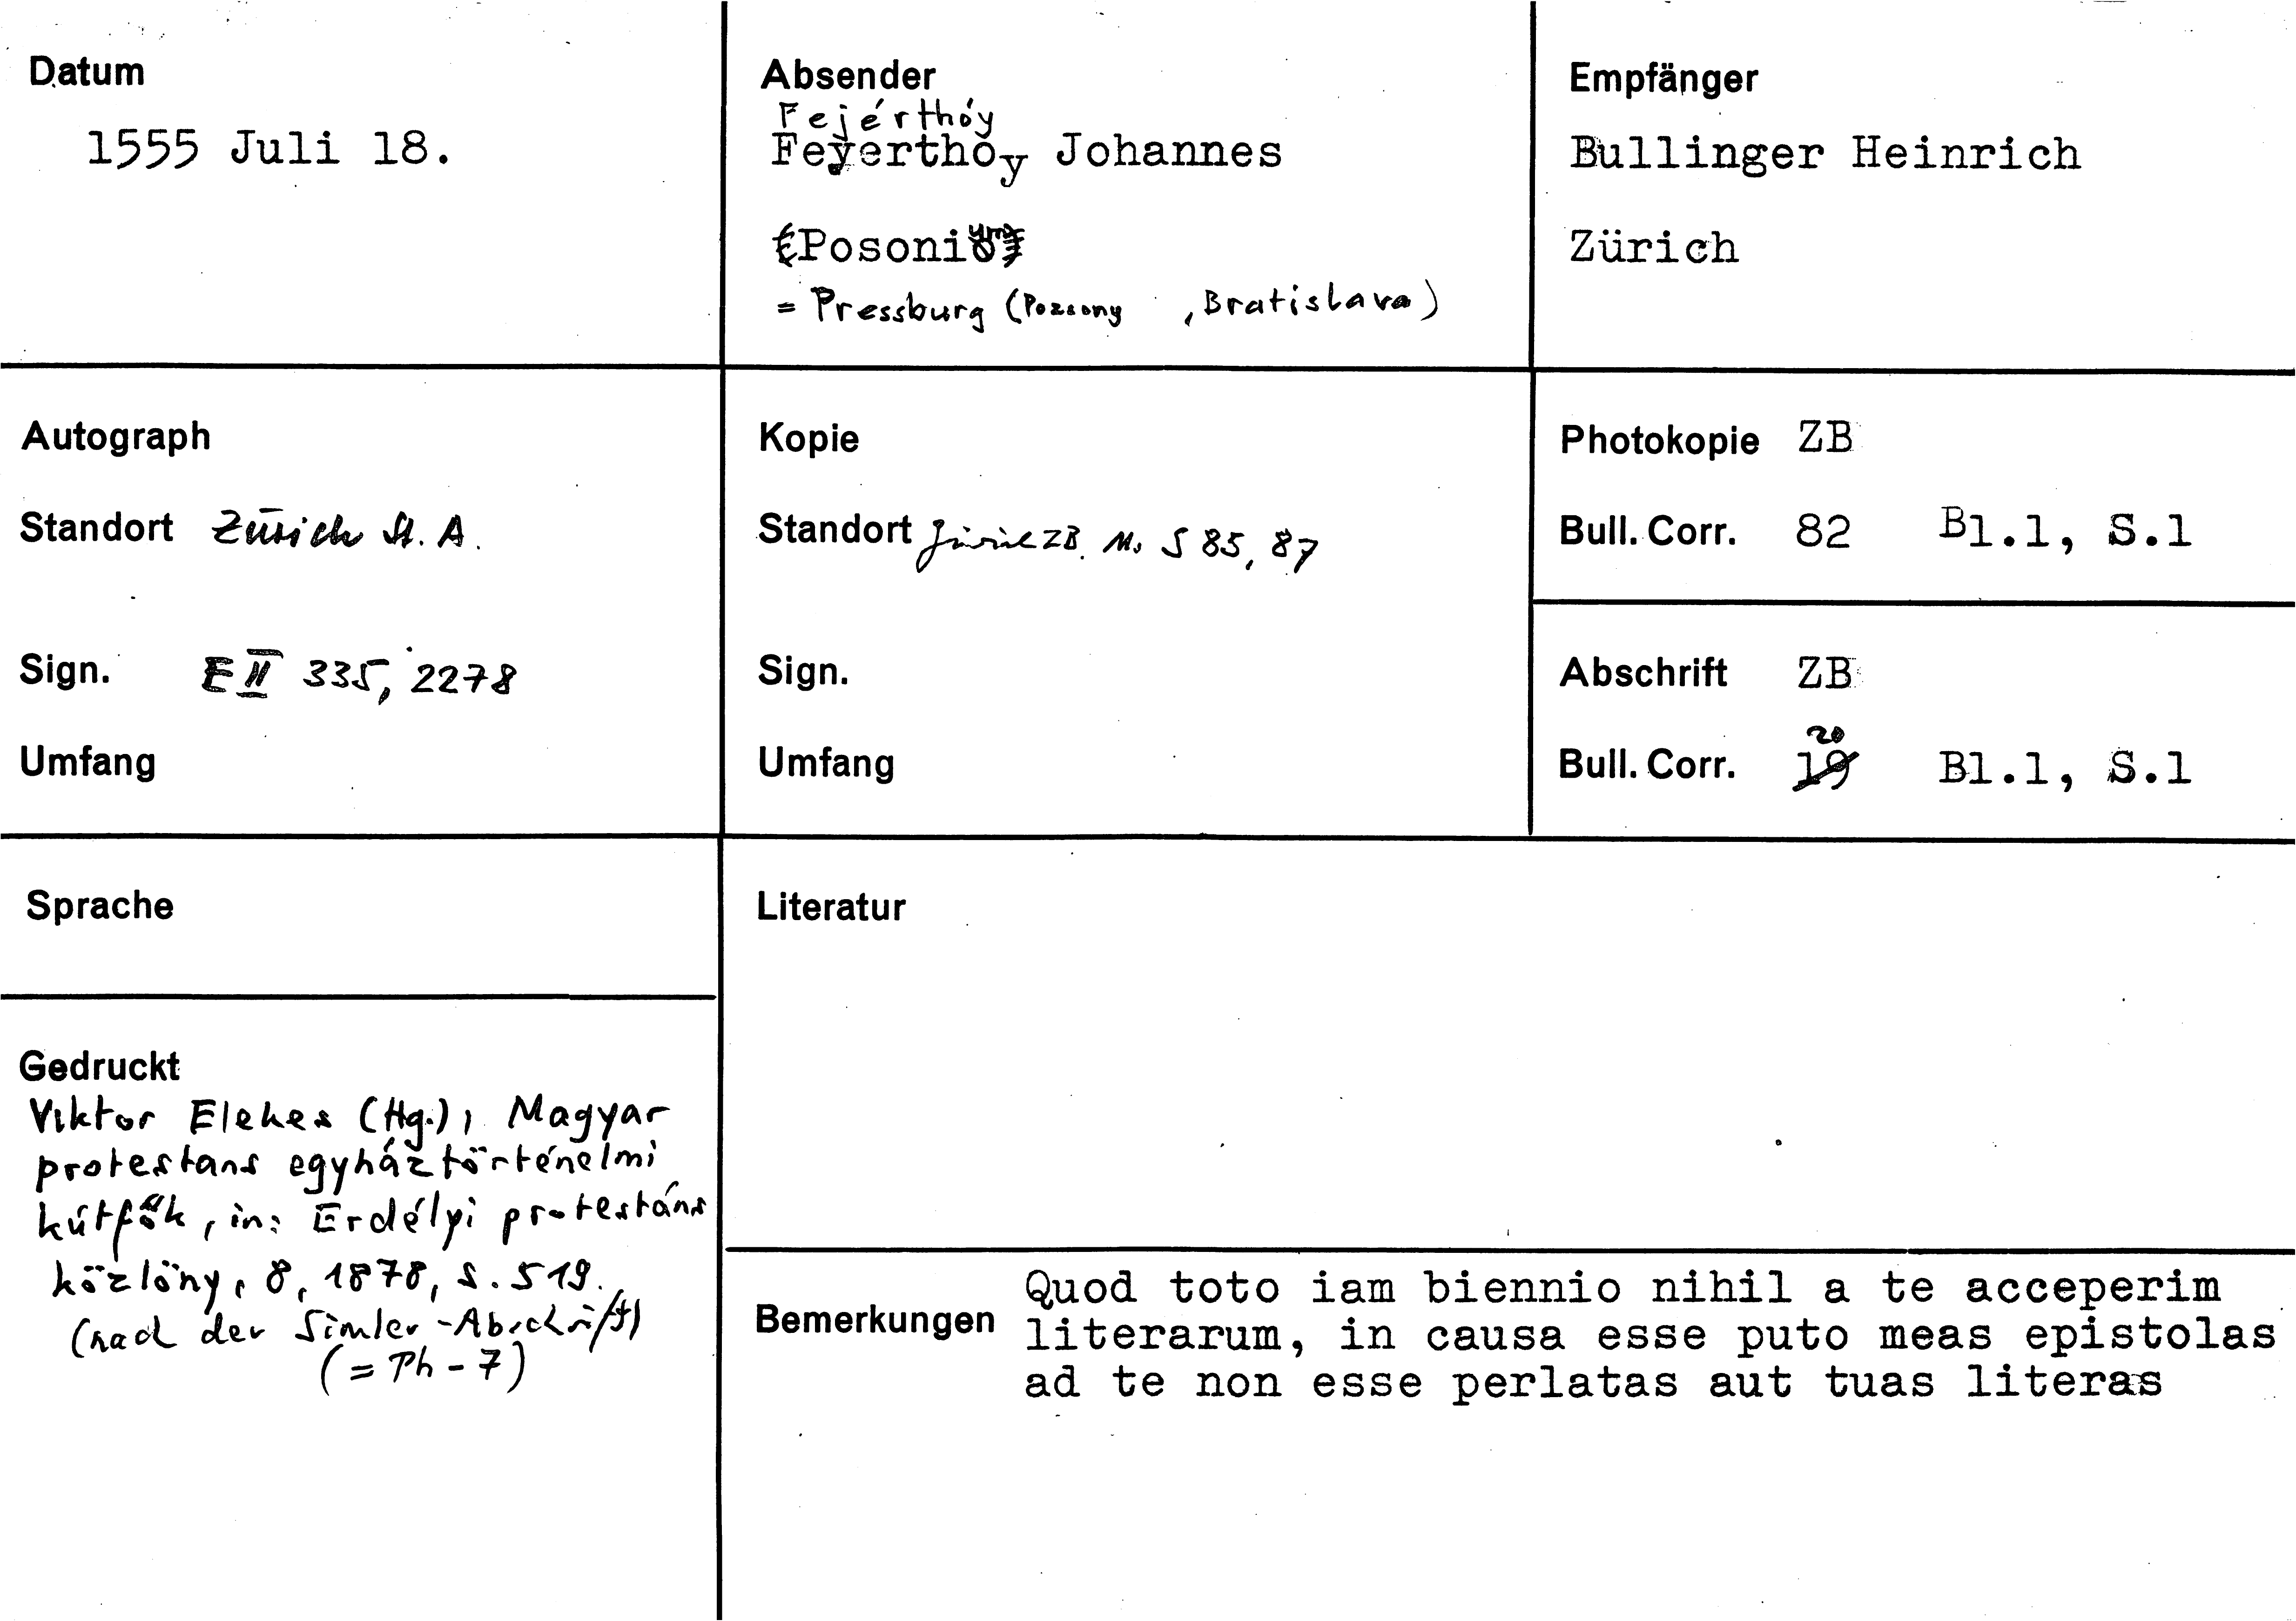 Datum
1555 Juli 18.
Absender
Fejérthóy
Feyerthóy Johannes
(Posoni
= Pressburg (Pozsony , Bratislava)
Empfänger
Bullinger Heinrich
Zürich
Autograph
Standort Zürich St. A.
Sign. E II 335, 2278
Umfang
Kopie
Standort Zürich ZB. Ms S 85, 87
Sign.
Umfang
Photokopie ZB
Bull. Corr. 82 Bl.1, S.1
Abschrift ZB
20
Bull. Corr. 19 Bl.1, S.1
Sprache
Gedruckt
Viktor Elekes (Hg.), Magyar
protestans egyháztörténelmi
kútfők, in: Erdélyi protestáns
közlöny, 8, 1878, S. 519.
(nach der Simler-Abschrift)
(= Ph - 7)
Literatur
Bemerkungen
Quod toto iam biennio nihil a te acceperim
literarum, in causa esse puto meas epistolas
ad te non esse perlatas aut tuas literas